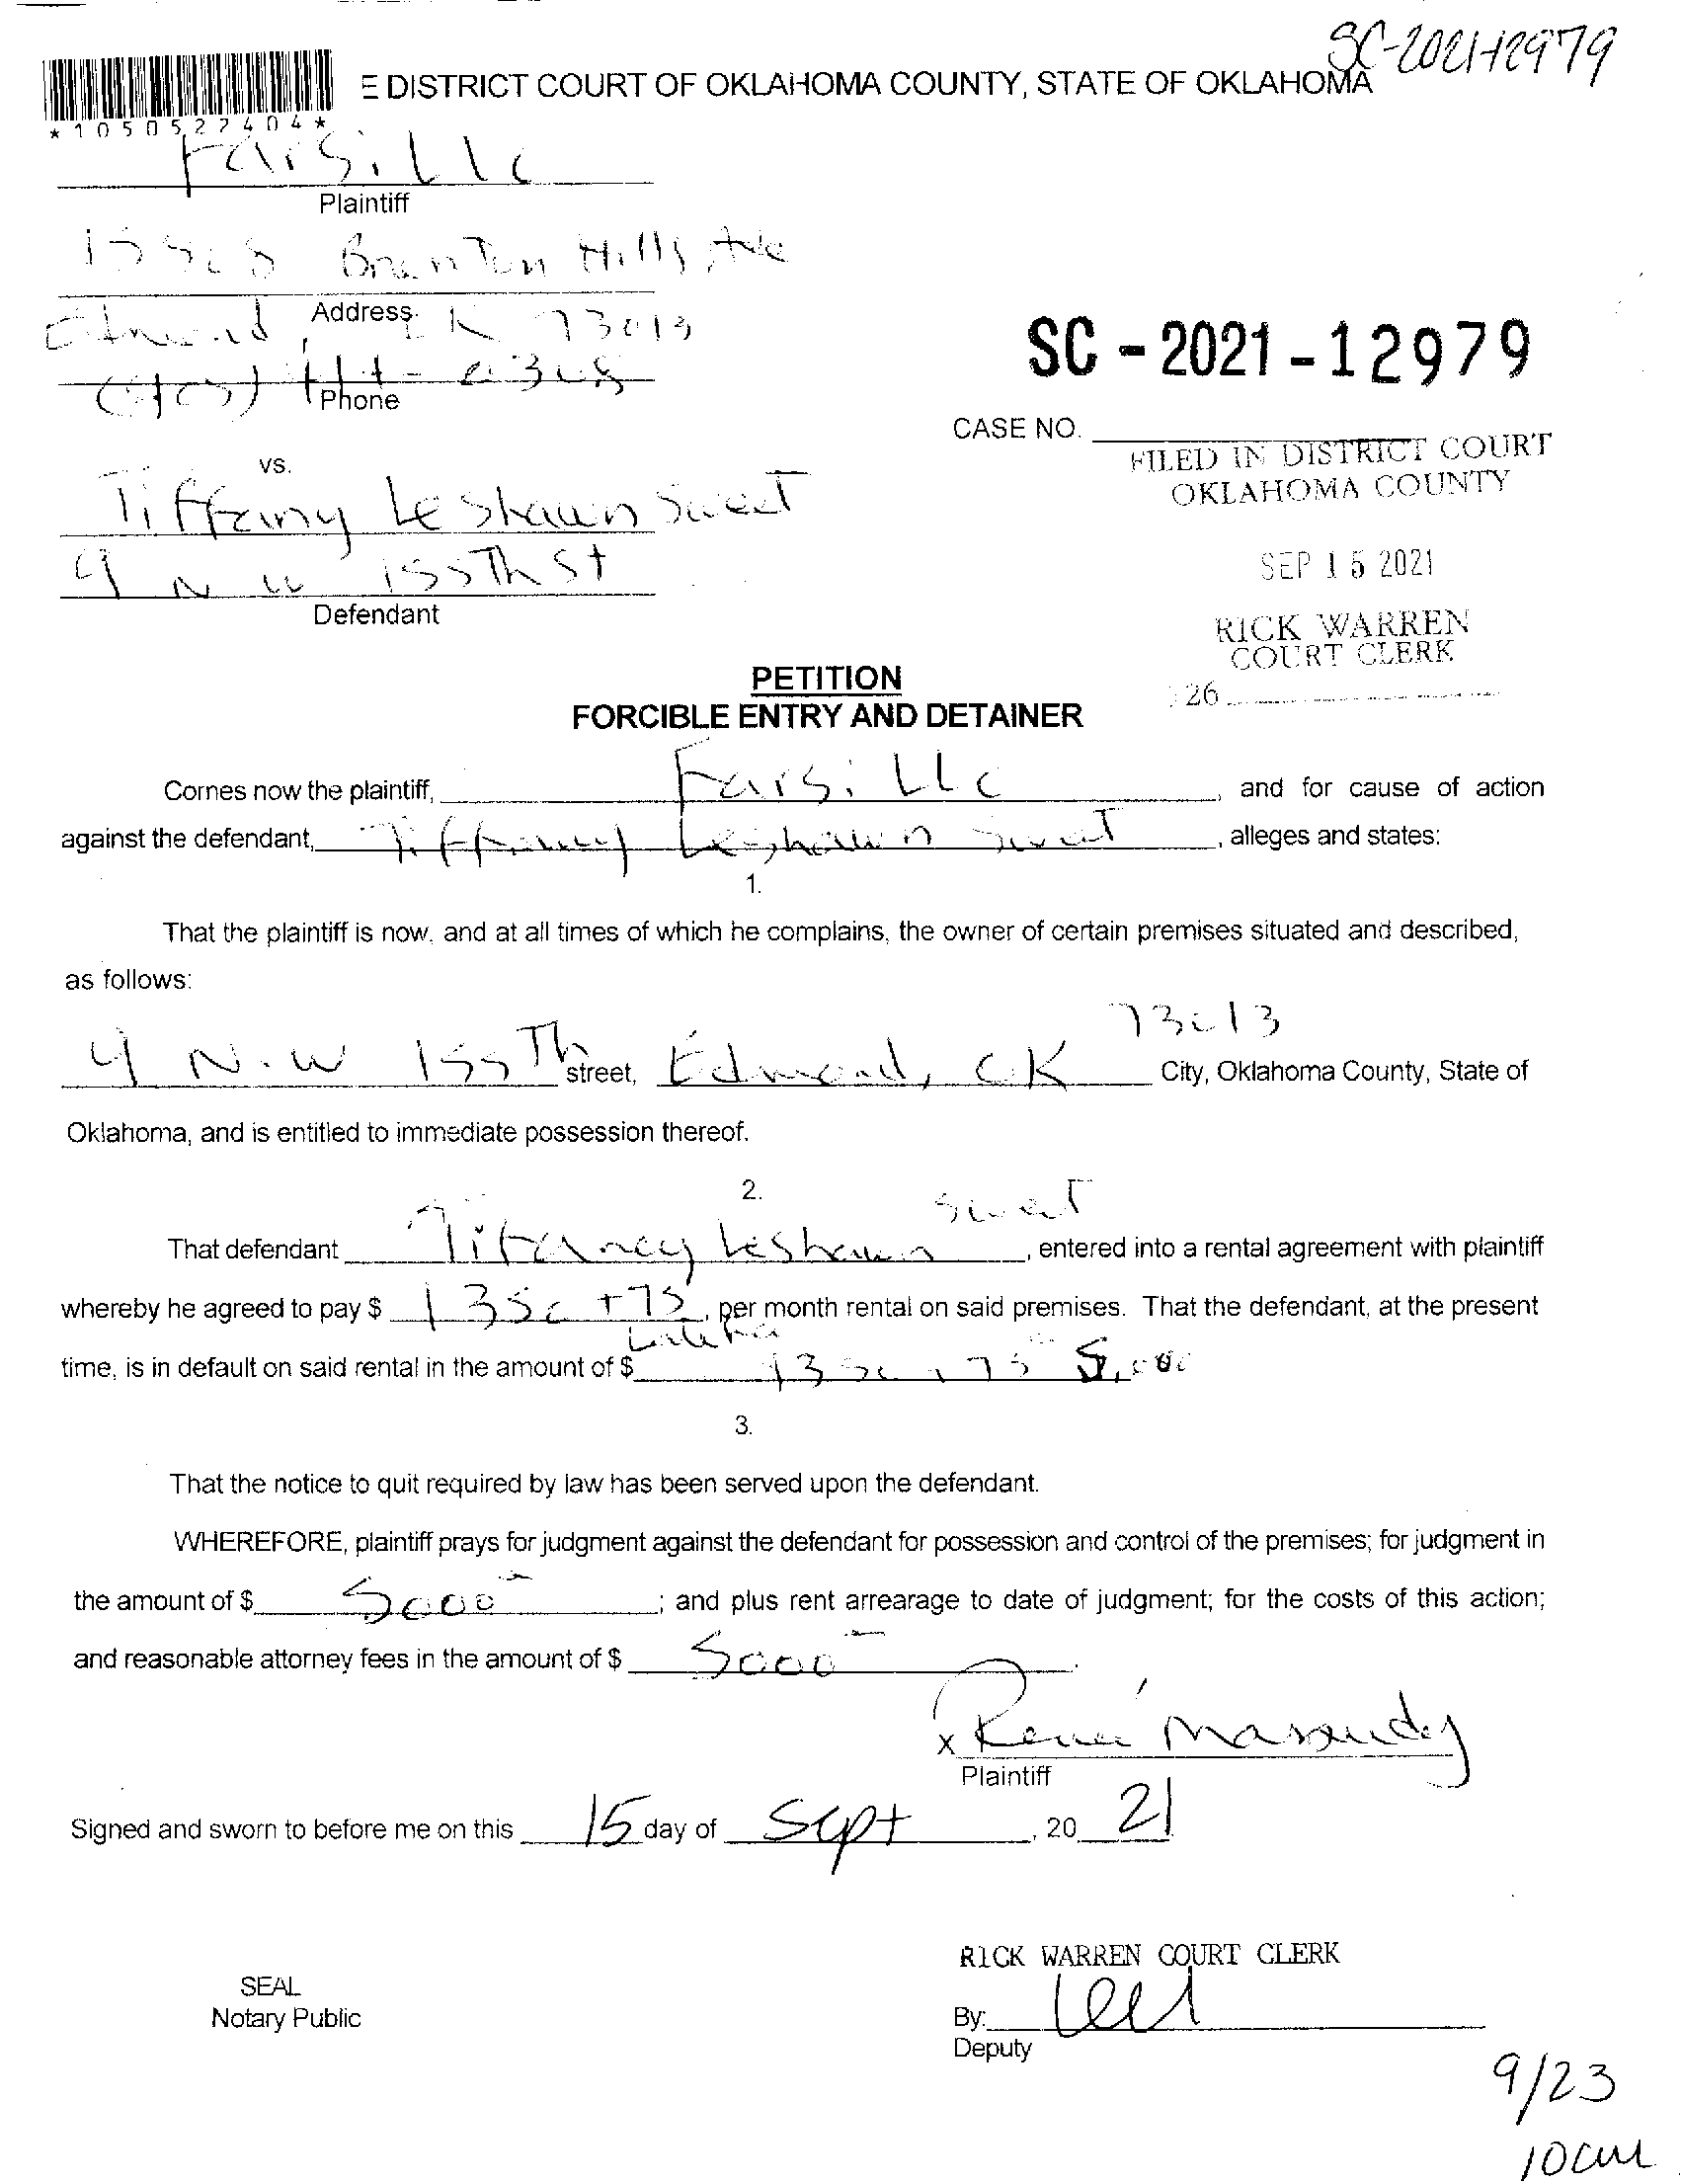 SC-2021-12979
E DISTRICT COURT OF OKLAHOMA COUNTY, STATE OF OKLAHOMA
*1050527404*
Farsi LLC
Plaintiff
Hills Ave
Address
Edmond, OK 73013
Phone
SC - 2021 - 12979
CASE NO.
FILED IN DISTRICT COURT
OKLAHOMA COUNTY
SEP 15 2021
RICK WARREN
COURT CLERK
26
vs.
Tiffany Leshawn Sweet
4 NW 155Th St
Defendant
PETITION
FORCIBLE ENTRY AND DETAINER
Comes now the plaintiff, Farsi LLC, and for cause of action
against the defendant, Tiffaney Leshawn Sweet, alleges and states:
1.
That the plaintiff is now, and at all times of which he complains, the owner of certain premises situated and described,
as follows:
73013
4 N.W 155Th street, Edmond, OK City, Oklahoma County, State of
Oklahoma, and is entitled to immediate possession thereof.
2.
Sweet
That defendant Tifaney Leshawn, entered into a rental agreement with plaintiff
whereby he agreed to pay $ 1350 + 75, per month rental on said premises. That the defendant, at the present
time, is in default on said rental in the amount of $ 1350 + 75 5,000
3.
That the notice to quit required by law has been served upon the defendant.
WHEREFORE, plaintiff prays for judgment against the defendant for possession and control of the premises; for judgment in
the amount of $ 5000; and plus rent arrearage to date of judgment; for the costs of this action;
and reasonable attorney fees in the amount of $ 5000
x Renee Masoudy
Plaintiff
Signed and sworn to before me on this 15 day of Sept, 20 21
RICK WARREN COURT CLERK
SEAL
Notary Public
By:
Deputy
9/23
10am